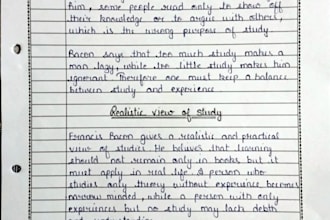 him, some people read only to show off
their knowledge or to argue with others,
which is the wrong purpose of study.
Bacon says that too much study makes a
man lazy, while too little study makes him
ignorant. Therefore one must keep a balance
between study and experience.
Realistic view of study
Francis Bacon gives a realistic and practical
view of studies. He believes that learning
should not remain only in books but it
must apply in real life. A person who
studies only theory without experience becomes
narrow minded, while a person with only
experience but no study may lack depth